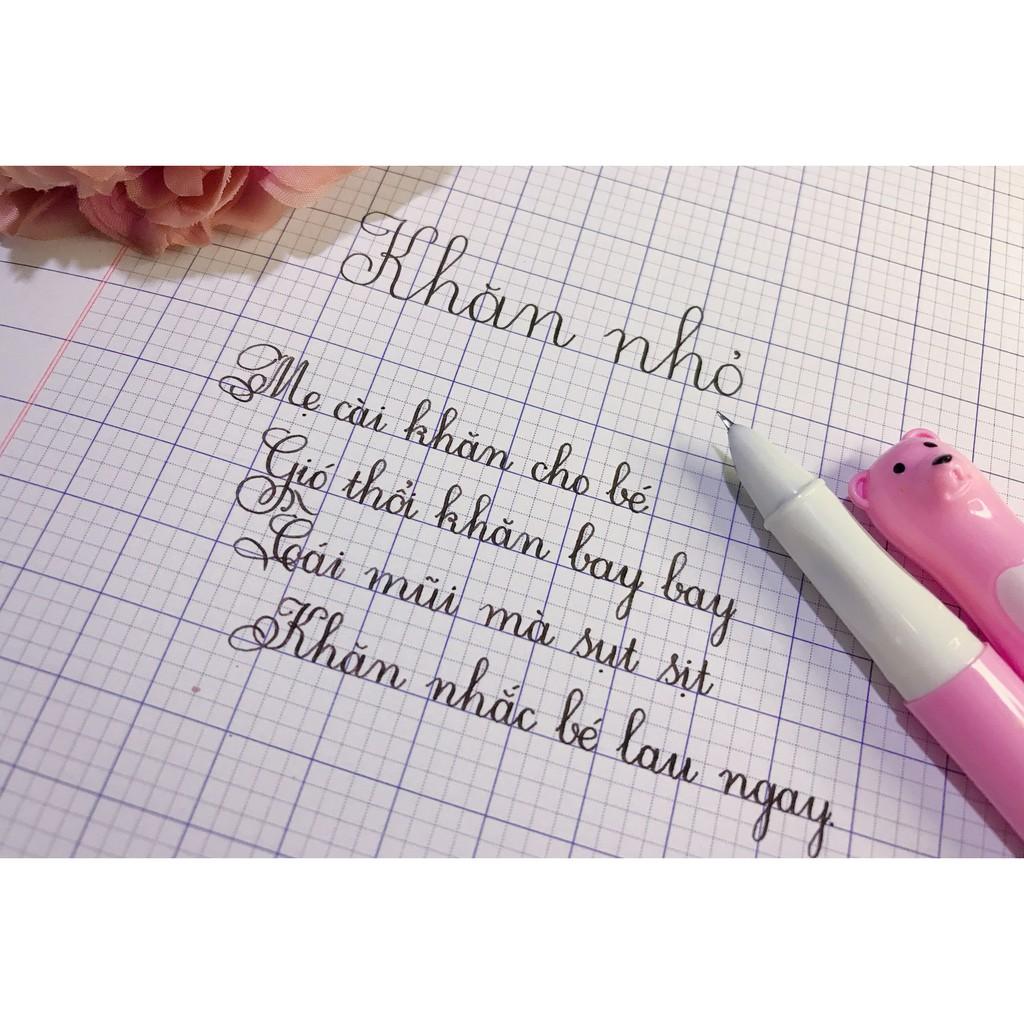 Khăn nhỏ
Mẹ cài khăn cho bé
Gió thổi khăn bay bay
Cái mũi mà sụt sịt
Khăn nhắc bé lau ngay.